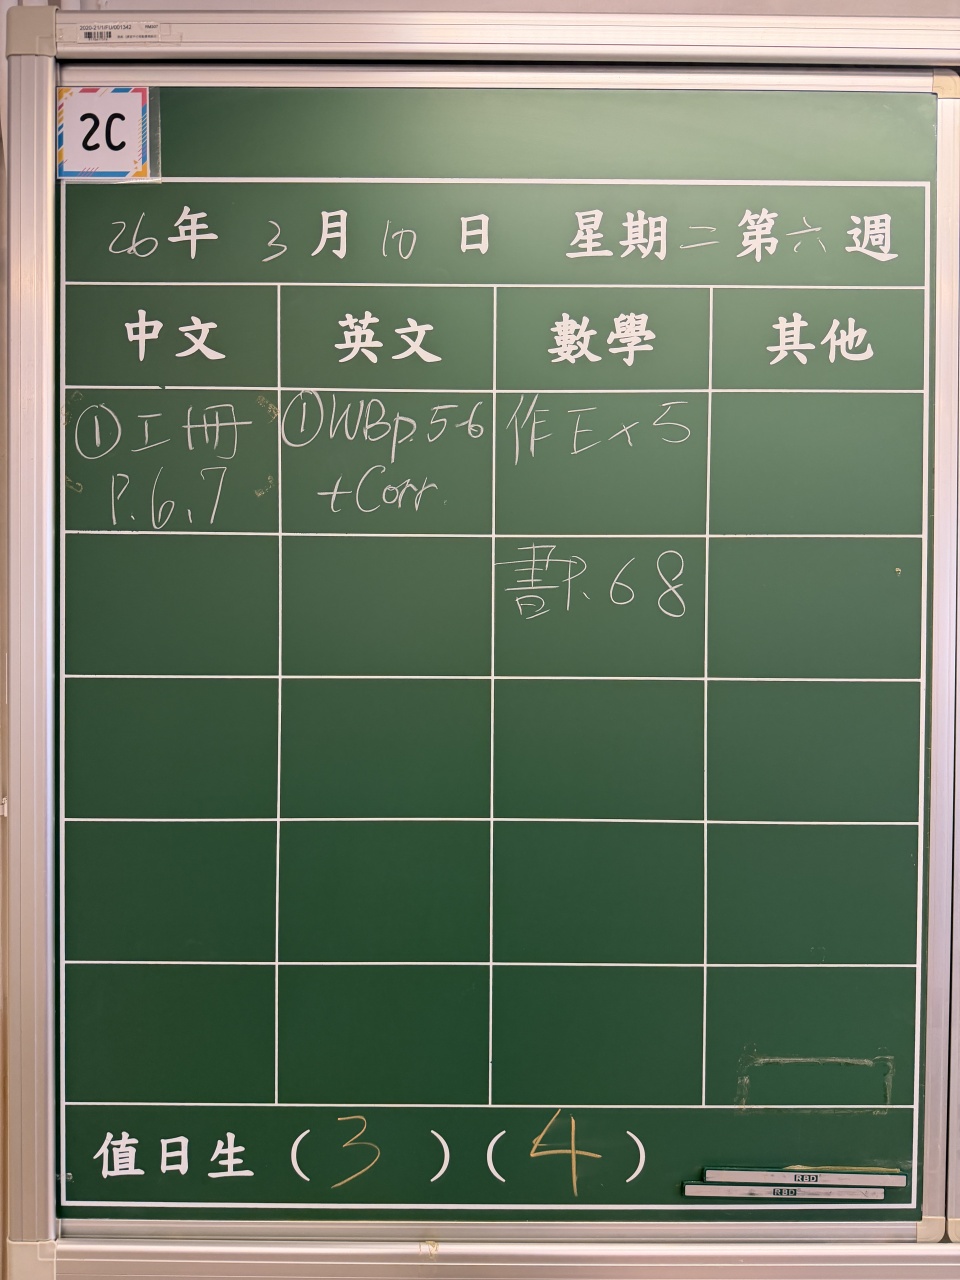 2020-21/UFU/001342
2C
26年 3月10日 星期二第六週
中文 英文 數學 其他
①工冊
P.6,7
①WBp.5-6
+Corr.
作Ex5
書P.68
值日生(3)(4)
RBD
RBD